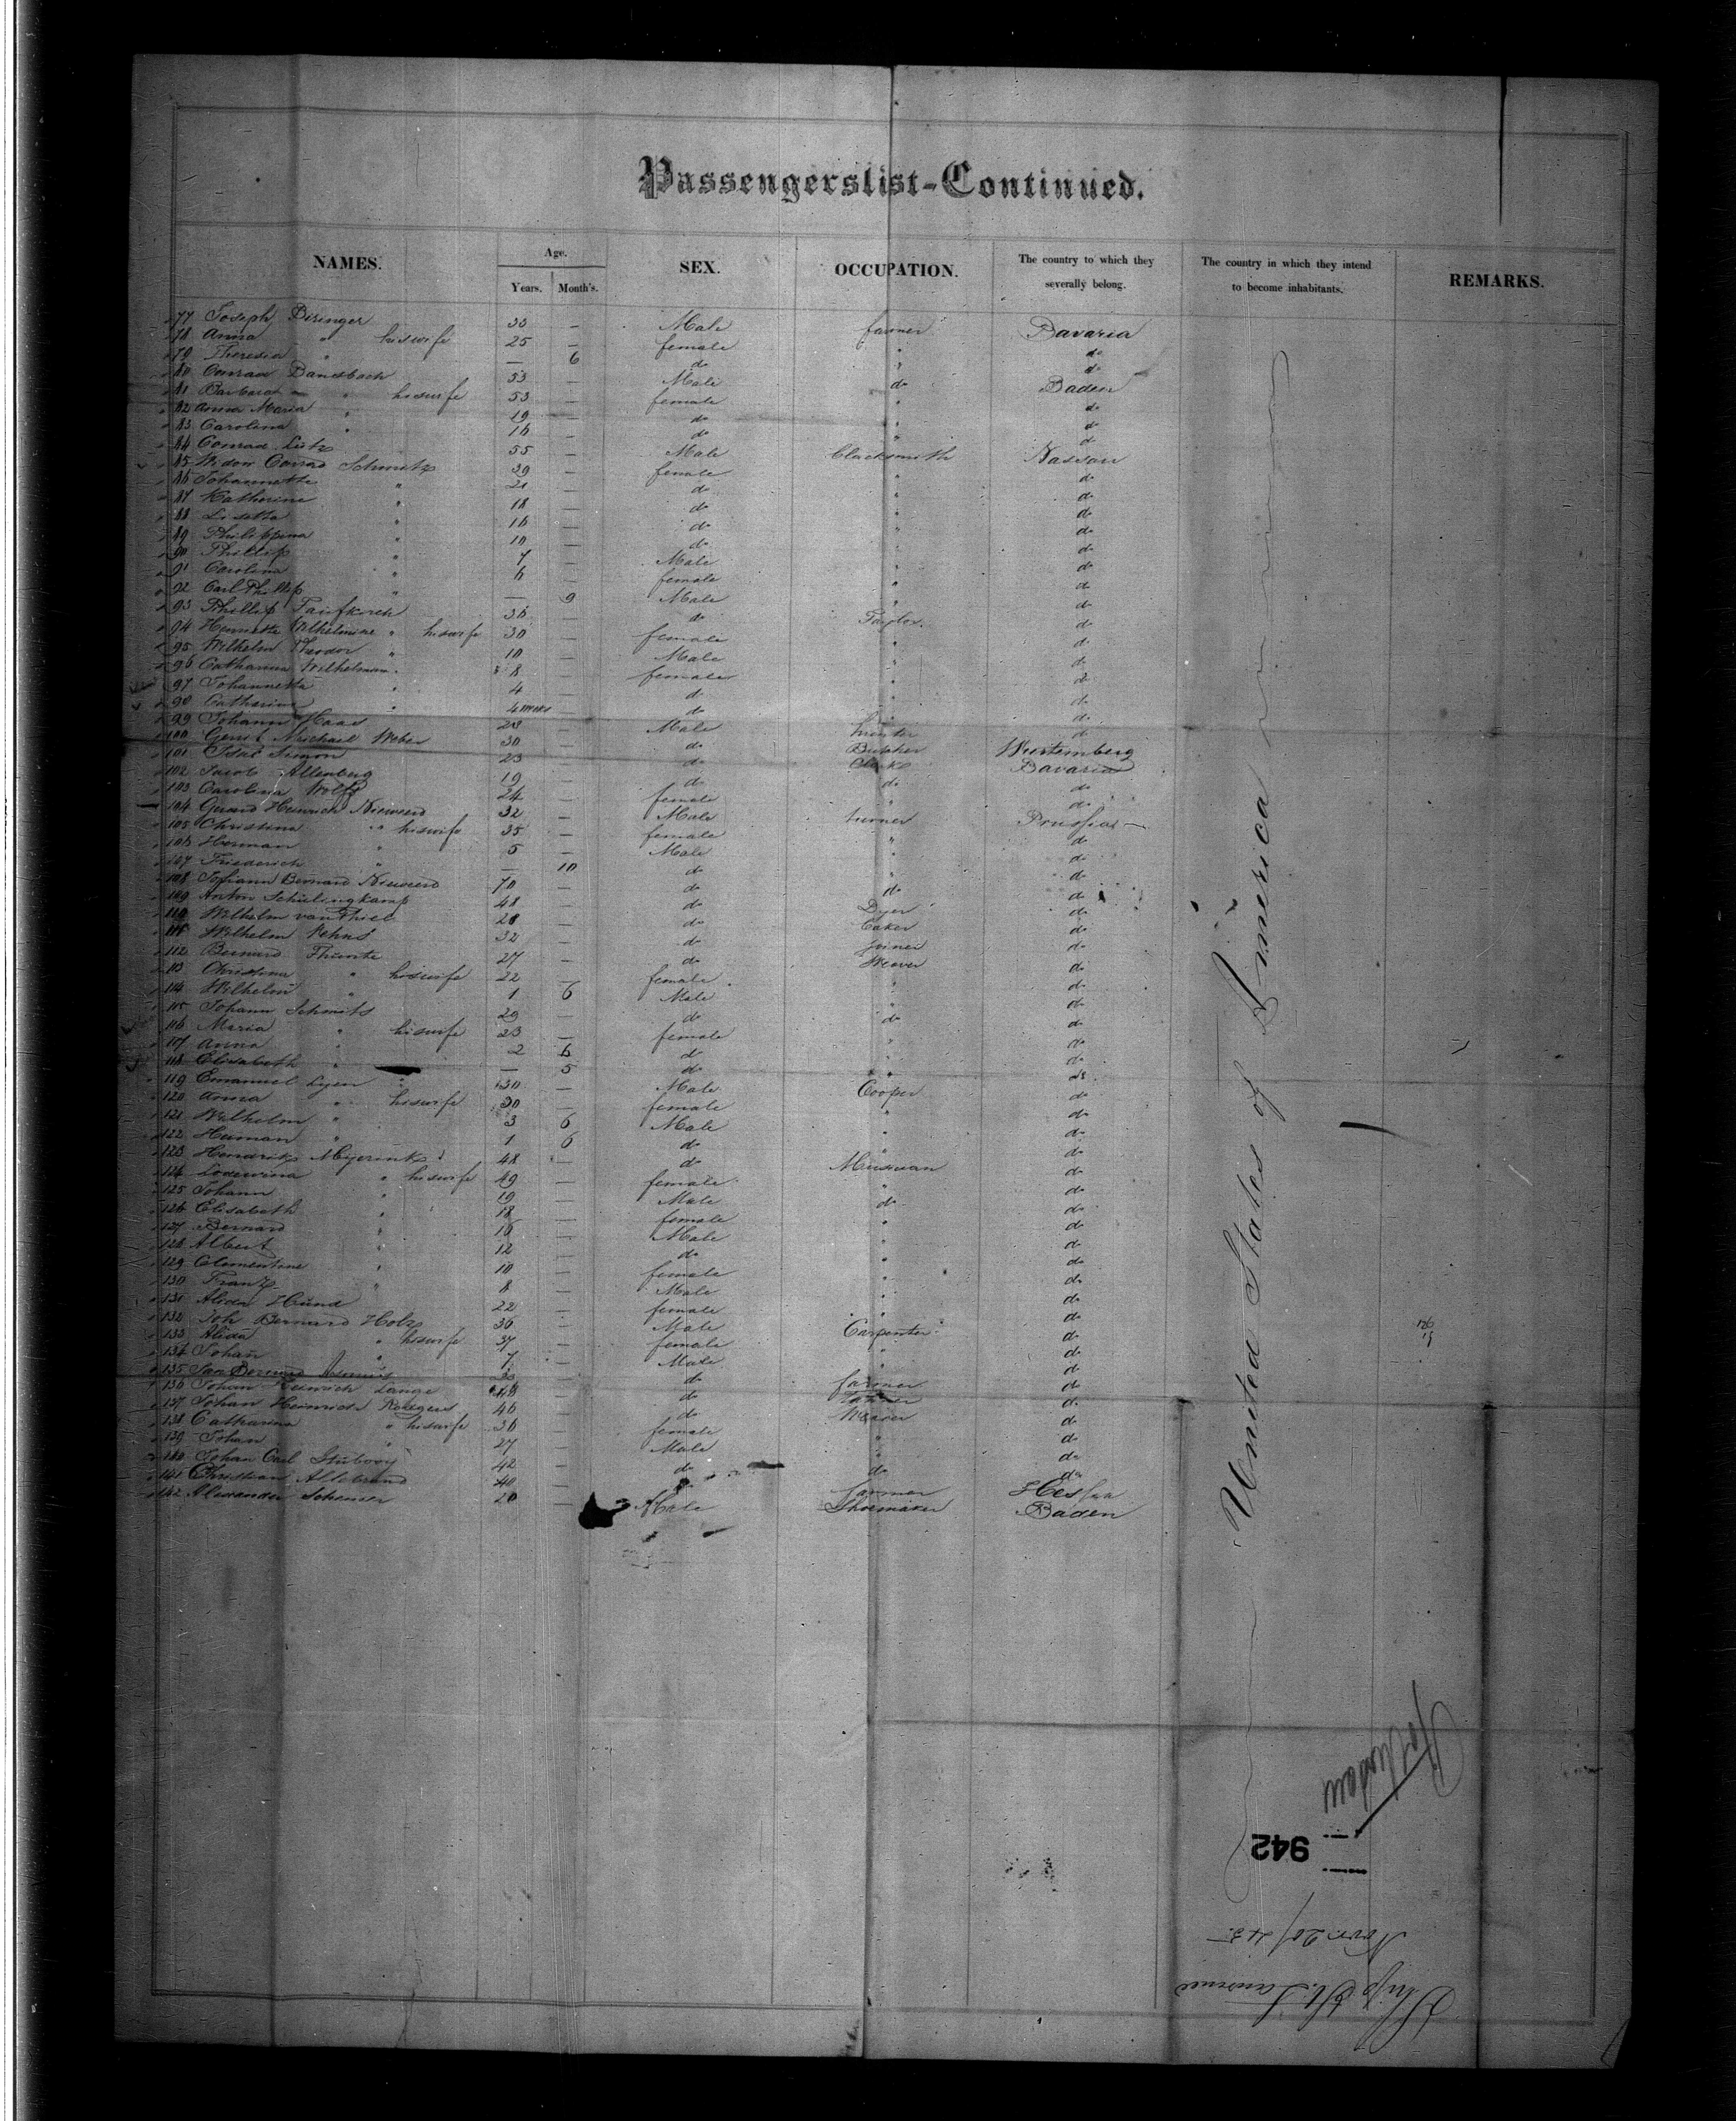 Passengerslist-Continued.
NAMES. Age. SEX. OCCUPATION. The country to which they severally belong. The country in which they intend to become inhabitants. REMARKS.
Years. Month's.
77 Joseph Diringer 33 — Male farmer Bavaria
78 Anna " his wife 25 — female " do
79 Theresia " — 6 do " do
80 Conrad Dansbach 53 — Male do Baden
81 Barbara " his wife 53 — female " do
82 Anna Maria " 19 — do " do
83 Carolina " 16 — do " d
84 Conrad Lutz 55 — Male Blacksmith Nassau
85 Widow Conrad Schmitz 39 — female " do
86 Johannette " 21 — do " do
87 Katharine " 18 — do " do
88 Lisetta " 16 — do " do
89 Philippina " 10 — do " do
90 Phillip " 7 — Male " do
91 Carolina " 6 — female " do
92 Carl Phillip " — 9 Male " do
93 Phillip 36 — do Taylor do
94 Henriette Wilhelmine " his wife 30 — female " do
95 Wilhelm Theodor " 10 — Male " do
96 Catharina Wilhelmina " 8 — female " do
97 Johannetta " 4 — do " do
98 Catharina " 4 weeks — do " do
99 Johann Haas 23 — Male hunter do
100 Michael Weber 30 — do Butcher Wurtemberg
101 Isaac Simon 23 — do Clerk Bavaria
102 Jacob Altenberg 19 — do do do
103 Carolina Wolff 24 — female " do
104 Gerard Heinrich Nieweerd 32 — Male turner Prussia —
105 Christina " his wife 35 — female " do
106 Herman " 5 — Male " do
107 Friederich " — 10 do " do
108 Johann Bernard Nieweerd 70 — do do do
109 Anton Schulingkamp 48 — do Dyer do
110 Wilhelm van Thiel 28 — do Baker do
111 Wilhelm 32 — do Joiner do
112 Bernard 27 — do Weaver do
113 Christina " his wife 22 — female " do
114 Wilhelm " 1 6 Male " do
115 Johann Schmits 29 — do do do
116 Maria " his wife 23 — female " do
117 Anna " 2 6 do " do
118 Elisabeth " — 5 do " do
119 Emanuel 30 — Male Cooper do
120 Anna " his wife 30 — female " do
121 Wilhelm " 3 6 Male " do
122 Herman " 1 6 do " do
123 Hendrik Meyerink 48 — do do
124 Lodewina " his wife 49 — female " do
125 Johann " 19 — Male do do
126 Elisabeth " 18 — female " do
127 Bernard " 16 — Male " do
128 Albert " 12 — do " do
129 Clementine " 10 — female " do
130 Franz " 8 — Male " do
131 Alida Hund 22 — female " do
132 Joh Bernard Holz 36 — Male Carpenter do
133 Alida " his wife 37 — female " do
134 Johan " 7 — Male " do
135 Jan — do farmer do
136 Johan Heinrich Lange 48 — do do
137 Johan Heinrich Rottgers 46 — do Weaver do
138 Catharina " his wife 36 — female " do
139 Johan " 27 — Male " do
140 Johan Carl 42 — do do do
141 Christian Aldebrand 40 — farmer Hessia
142 Alexander 20 — Male Shoemaker Baden
United States of America
Rotterdam
942
Nov 20/45
Ship St. Lawrence